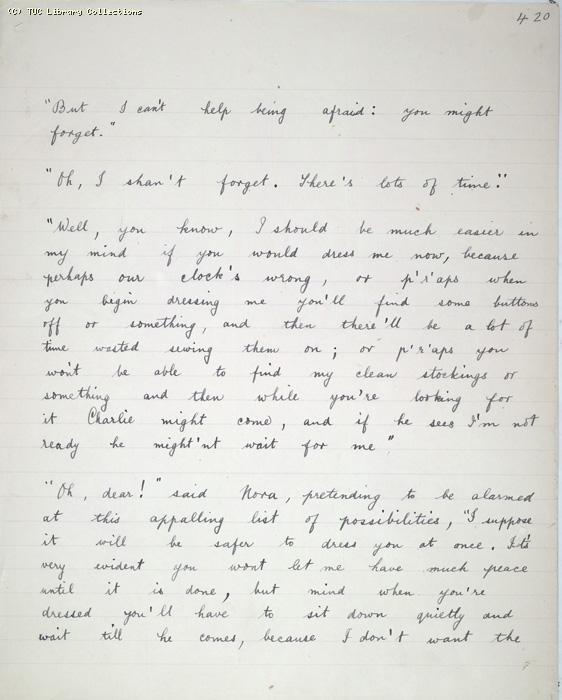 (C) TUC Library Collections
420
"But I can't help being afraid: you might
forget."
"Oh, I shan't forget. There's lots of time."
"Well, you know, I should be much easier in
my mind if you would dress me now, because
perhaps our clock's wrong, or p'r'aps when
you begin dressing me you'll find some buttons
off or something, and then there'll be a lot of
time wasted sewing them on; or p'r'aps you
won't be able to find my clean stockings or
something and then while you're looking for
it Charlie might come, and if he sees I'm not
ready he might'nt wait for me"
"Oh, dear!" said Nora, pretending to be alarmed
at this appalling list of possibilities, "I suppose
it will be safer to dress you at once. It's
very evident you wont let me have much peace
until it is done, but mind when you're
dressed you'll have to sit down quietly and
wait till he comes, because I don't want the